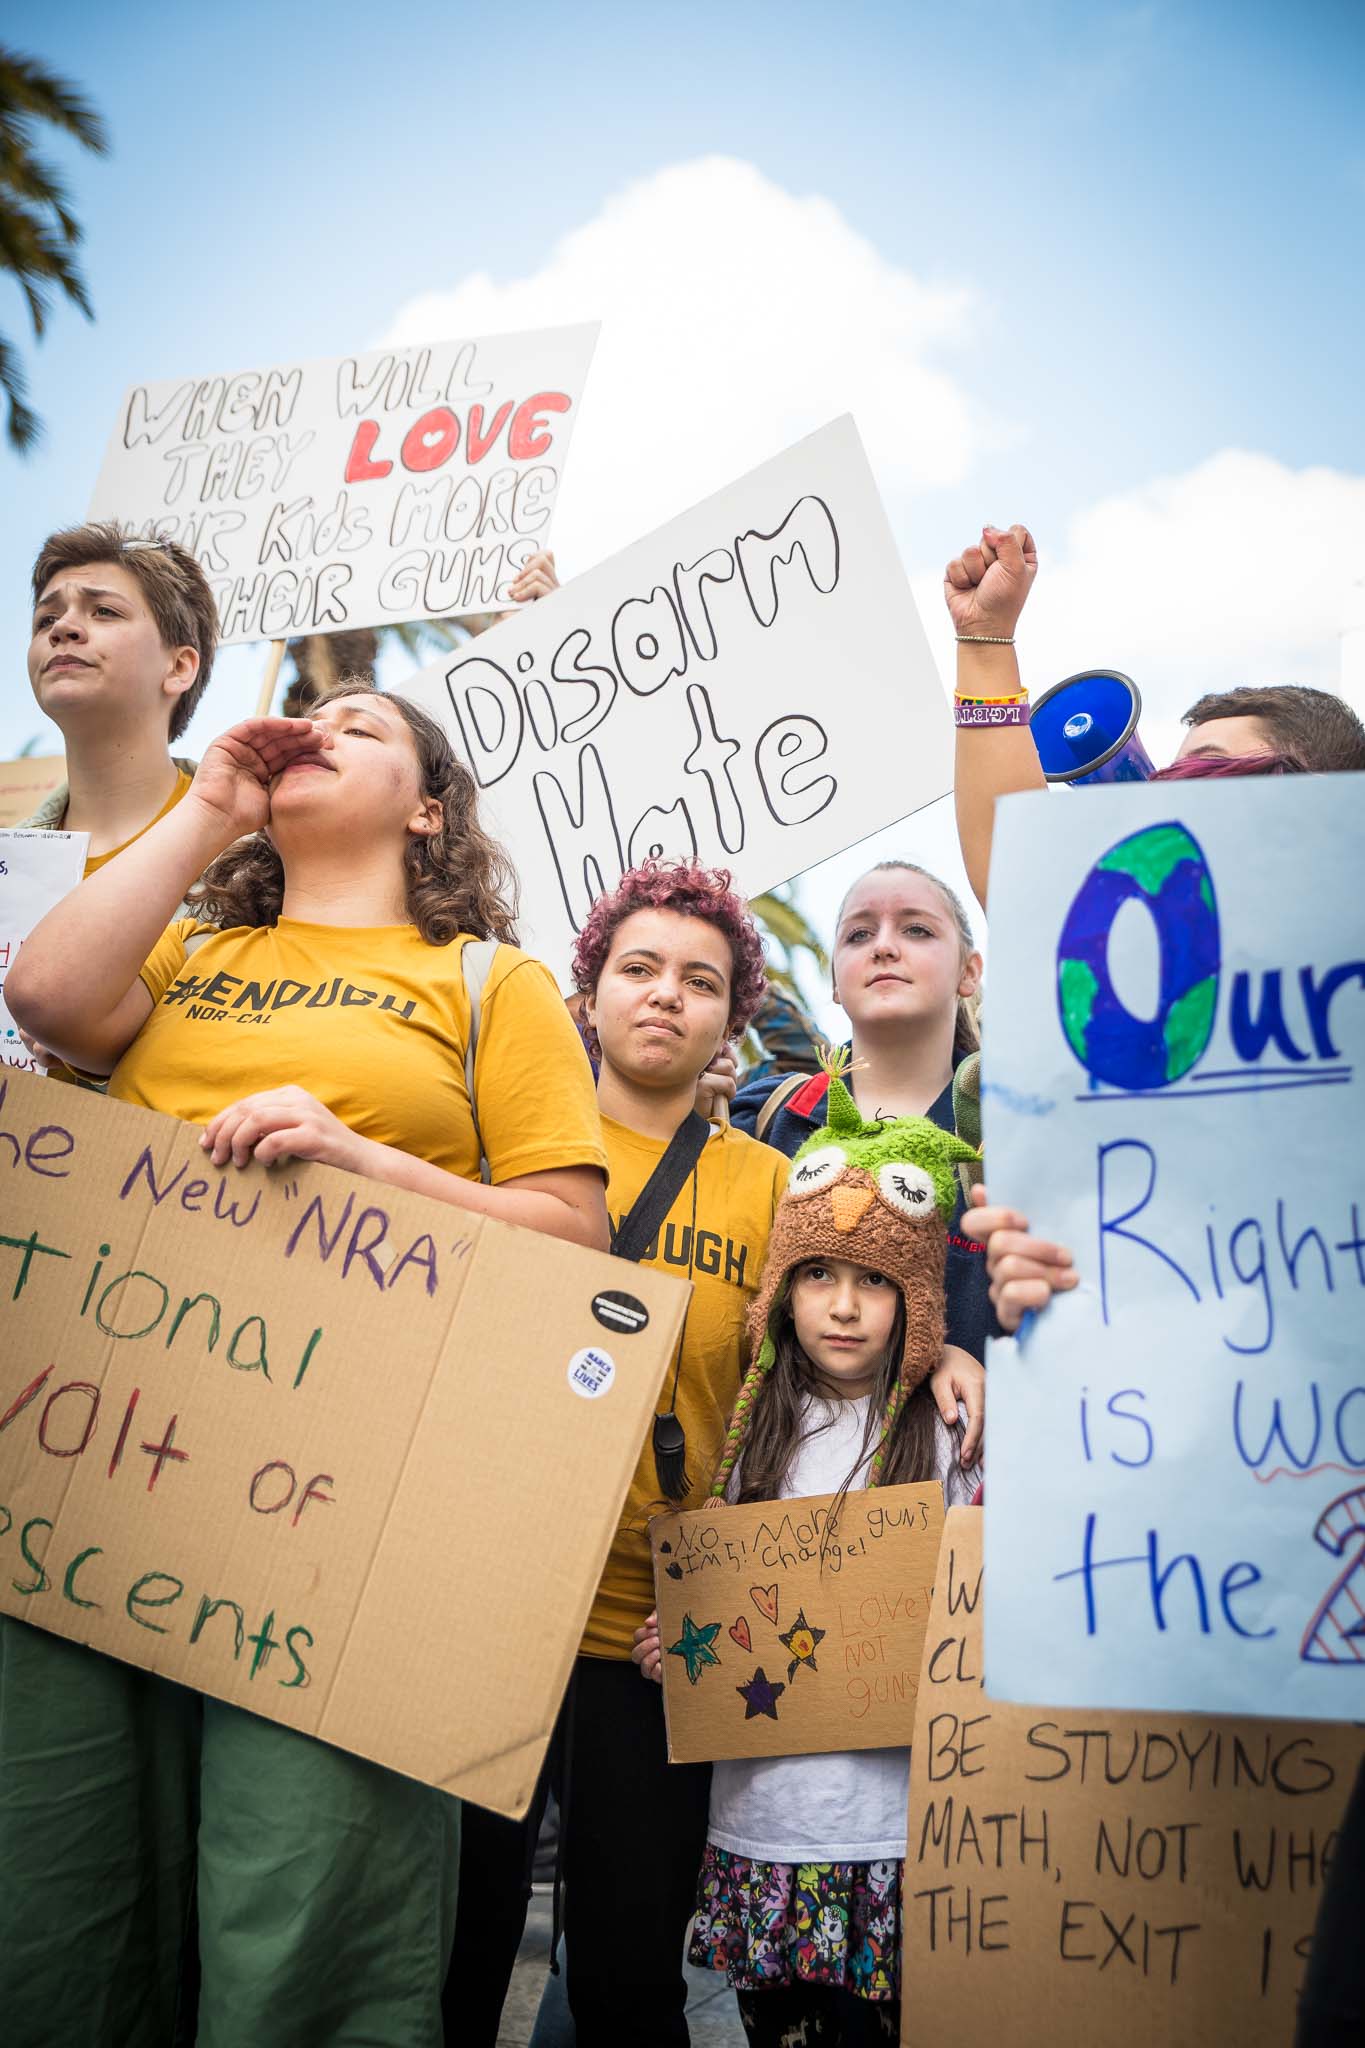 WHEN WILL
THEY LOVE
KidS MORE
THEIR GUNS
Disarm
Hate
LGBT
#ENOUGH
NOR-CAL
OUGH
New "NRA"
tional
volt of
scents
MARCH
LIVES
• No More guns
• I'M 5! Change!
LOVE
NOT
guns
Our
Right
is
the 2
BE STUDYING
MATH, NOT
THE EXIT IS